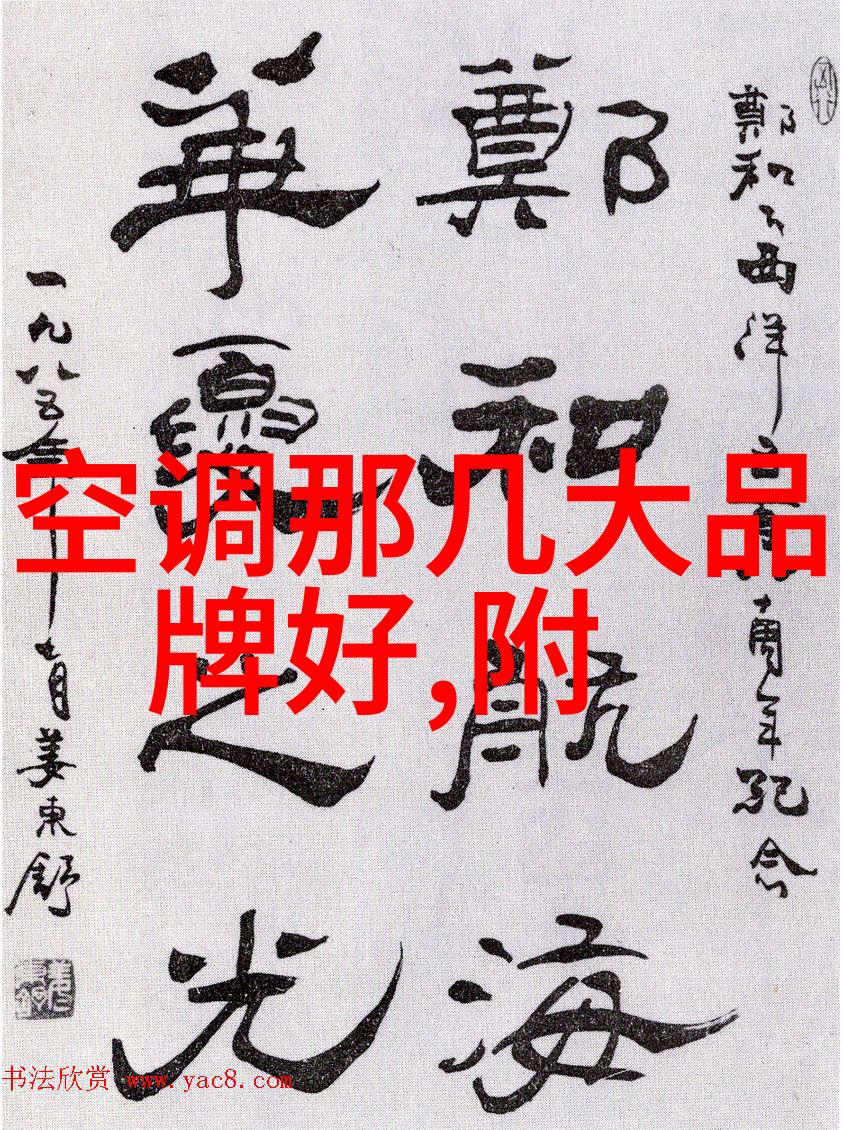 空调那几大品牌好,附
鄭和下西洋五百八十周年紀念
鄭和航海
華夏之光
一九八五年 月姜東舒
书法欣赏 www.yac8.com